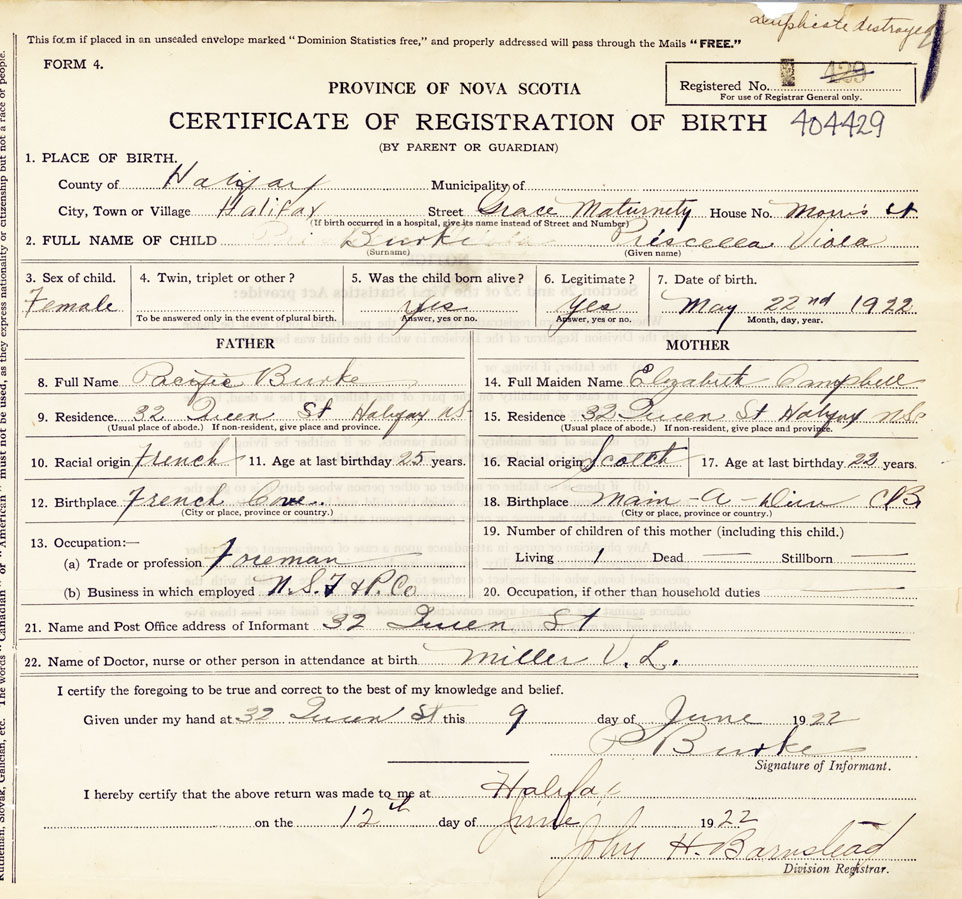 duplicate destroyed
This form if placed in an unsealed envelope marked "Dominion Statistics free," and properly addressed will pass through the Mails "FREE."
FORM 4.
Registered No. 429
For use of Registrar General only.
PROVINCE OF NOVA SCOTIA
CERTIFICATE OF REGISTRATION OF BIRTH 404429
(BY PARENT OR GUARDIAN)
1. PLACE OF BIRTH.
County of Halifax Municipality of
City, Town or Village Halifax Street Grace Maturnety House No. Morris St
(If birth occurred in a hospital, give its name instead of Street and Number)
2. FULL NAME OF CHILD Burke Priscella Viola
(Surname) (Given name)
3. Sex of child. 4. Twin, triplet or other? 5. Was the child born alive? 6. Legitimate? 7. Date of birth.
Female yes yes May 22nd 1922
To be answered only in the event of plural birth. Answer, yes or no. Answer, yes or no. Month, day, year.
FATHER
8. Full Name Pacific Burke
9. Residence 32 Queen St Halifax NS
(Usual place of abode.) If non-resident, give place and province.
10. Racial origin French 11. Age at last birthday 25 years.
12. Birthplace French Cove
(City or place, province or country.)
13. Occupation:—
(a) Trade or profession Foreman
(b) Business in which employed N.S.T & P. Co
MOTHER
14. Full Maiden Name Elizabeth Campbell
15. Residence 32 Queen St Halifax N.S.
(Usual place of abode.) If non-resident, give place and province.
16. Racial origin Scotch 17. Age at last birthday 22 years.
18. Birthplace Main-A-Dieu CB
(City or place, province or country.)
19. Number of children of this mother (including this child.)
Living 1 Dead — Stillborn —
20. Occupation, if other than household duties —
21. Name and Post Office address of Informant 32 Queen St
22. Name of Doctor, nurse or other person in attendance at birth Miller V. L.
I certify the foregoing to be true and correct to the best of my knowledge and belief.
Given under my hand at 32 Queen St this 9 day of June 1922
P Burke
Signature of Informant.
I hereby certify that the above return was made to me at Halifax
on the 12th day of June 1922
John H. Barnstead
Division Registrar.
Ruthenian, Slovak, Galician, etc. The words "Canadian" or "American" must not be used, as they express nationality or citizenship but not a race or people.